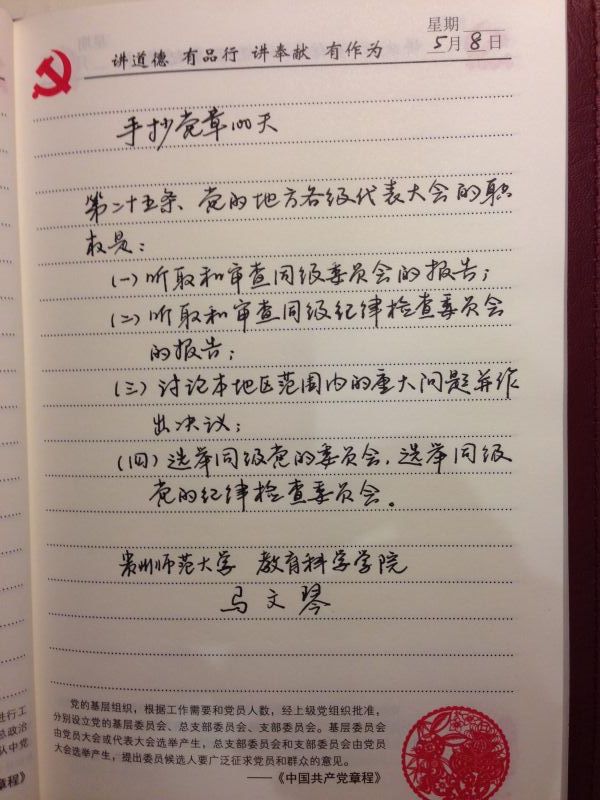 星期
5月8日
讲道德 有品行 讲奉献 有作为
手抄党章100天
第二十五条、党的地方各级代表大会的职
权是：
(一)听取和审查同级委员会的报告；
(二)听取和审查同级纪律检查委员会
的报告；
(三)讨论本地区范围内的重大问题并作
出决议；
(四)选举同级党的委员会，选举同级
党的纪律检查委员会。
贵州师范大学 教育科学学院
马文琴
党的基层组织，根据工作需要和党员人数，经上级党组织批准，
分别设立党的基层委员会、总支部委员会、支部委员会。基层委员会
由党员大会或代表大会选举产生，总支部委员会和支部委员会由党员
大会选举产生，提出委员候选人要广泛征求党员和群众的意见。
——《中国共产党章程》
进行工
总政治
队中党
章程》